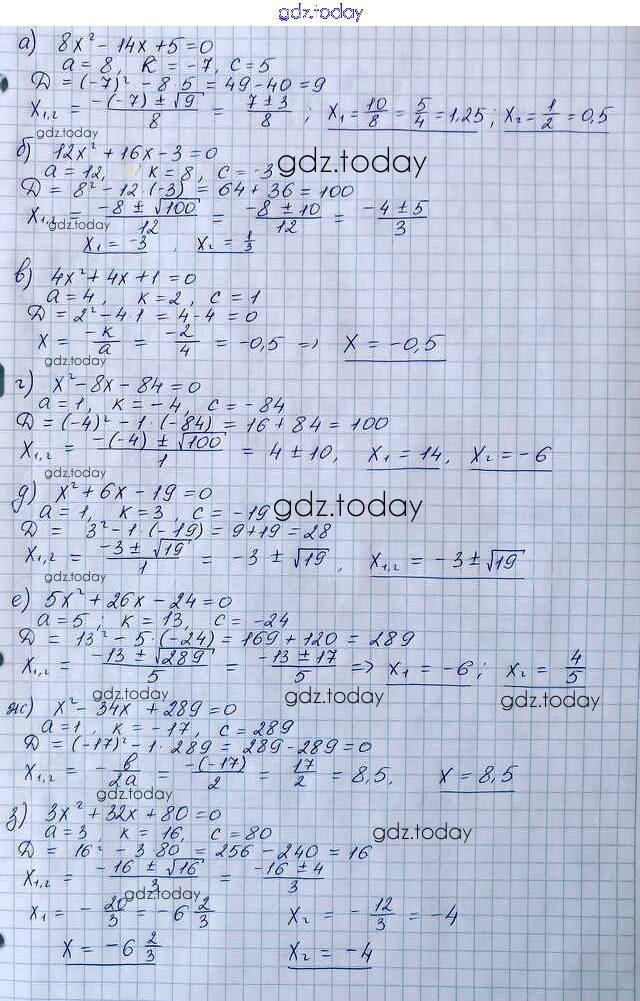 gdz.today
а) 8x² - 14x + 5 = 0
a = 8, k = -7, c = 5
D = (-7)² - 8·5 = 49 - 40 = 9
x₁,₂ = (-(-7) ± √9)/8 = (7 ± 3)/8 ; x₁ = 10/8 = 5/4 = 1,25; x₂ = 1/2 = 0,5
gdz.today
б) 12x² + 16x - 3 = 0
gdz.today
a = 12, k = 8, c = -3
D = 8² - 12·(-3) = 64 + 36 = 100
x₁,₂ = (-8 ± √100)/12 = (-8 ± 10)/12 = (-4 ± 5)/3
gdz.today
x₁ = -3, x₂ = 1/3
в) 4x² + 4x + 1 = 0
a = 4, k = 2, c = 1
D = 2² - 4·1 = 4 - 4 = 0
x = -k/a = -2/4 = -0,5 => x = -0,5
gdz.today
г) x² - 8x - 84 = 0
a = 1, k = -4, c = -84
D = (-4)² - 1·(-84) = 16 + 84 = 100
x₁,₂ = (-(-4) ± √100)/1 = 4 ± 10, x₁ = 14, x₂ = -6
gdz.today
д) x² + 6x - 19 = 0
a = 1, k = 3, c = -19
gdz.today
D = 3² - 1·(-19) = 9 + 19 = 28
x₁,₂ = (-3 ± √19)/1 = -3 ± √19, x₁,₂ = -3 ± √19
gdz.today
е) 5x² + 26x - 24 = 0
a = 5; k = 13, c = -24
D = 13² - 5·(-24) = 169 + 120 = 289
x₁,₂ = (-13 ± √289)/5 = (-13 ± 17)/5 => x₁ = -6; x₂ = 4/5
gdz.today gdz.today gdz.today
ж) x² - 34x + 289 = 0
a = 1, k = -17, c = 289
D = (-17)² - 1·289 = 289 - 289 = 0
x₁,₂ = -в/2a = -(-17)/2 = 17/2 = 8,5. x = 8,5
gdz.today
з) 3x² + 32x + 80 = 0
a = 3, k = 16, c = 80
gdz.today
D = 16² - 3·80 = 256 - 240 = 16
x₁,₂ = (-16 ± √16)/3 = (-16 ± 4)/3
gdz.today
x₁ = -20/3 = -6 2/3 x₂ = -12/3 = -4
x = -6 2/3 x₂ = -4